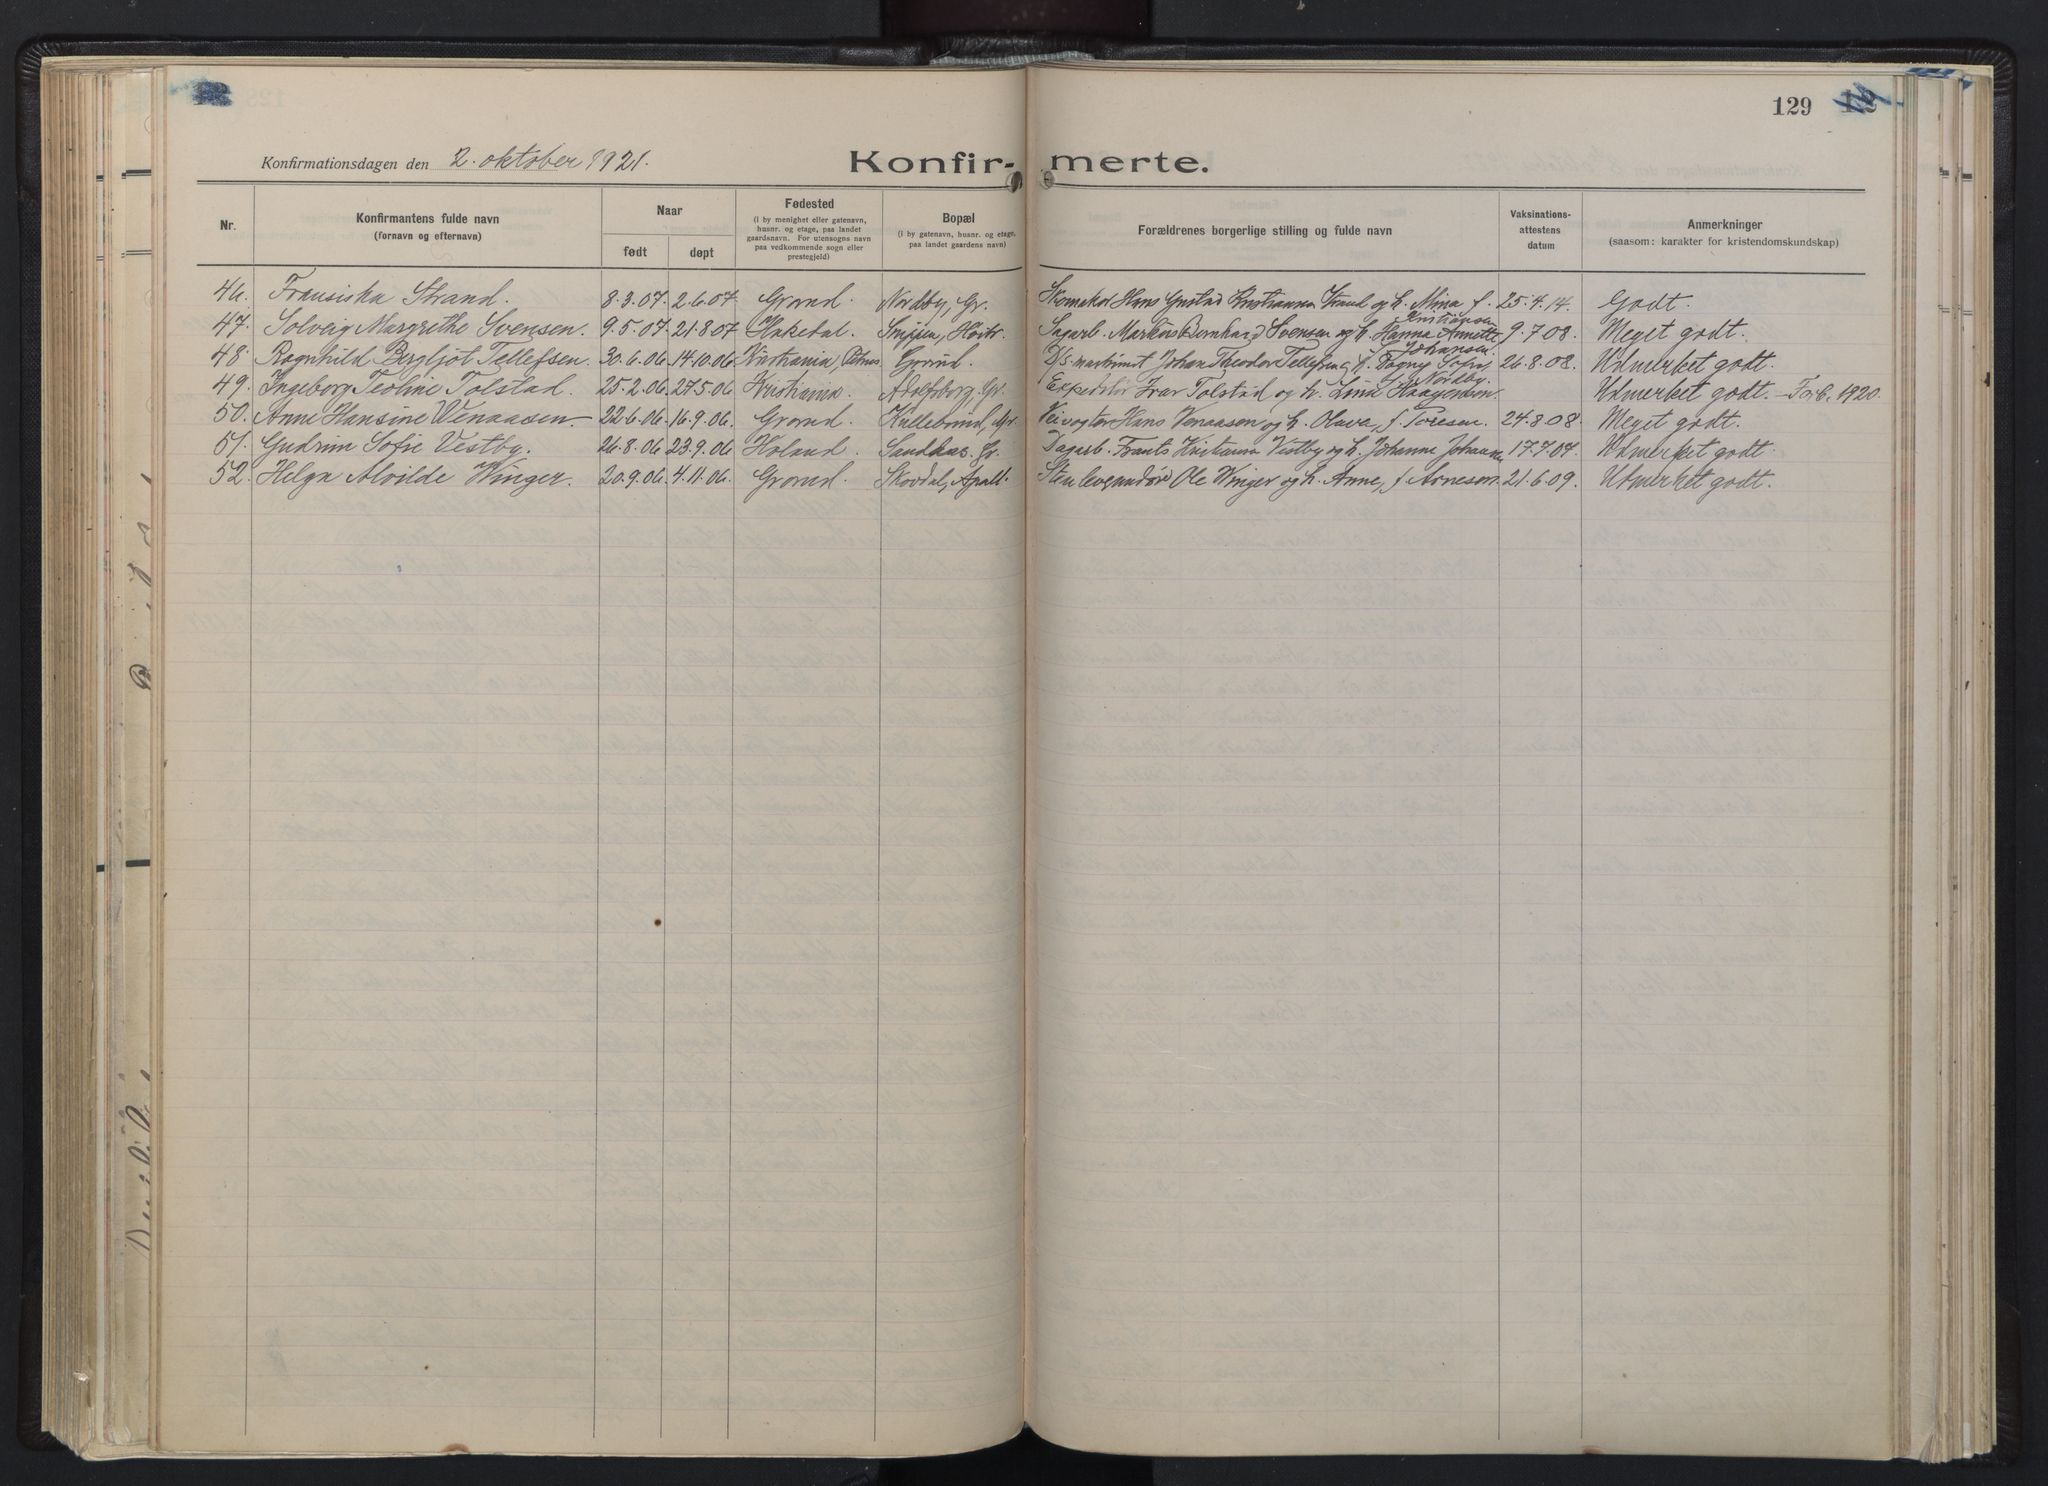 129
Konfirmationsdagen den 2. oktober 1921.
Konfir- merte.
Nr.
Konfirmantens fulde navn
(fornavn og efternavn)
Naar
født
døpt
Fødested
(I by menighet eller gatenavn,
husnr. og etage, paa landet
gaardsnavn. For utensogns navn
paa vedkommende sogn eller
prestegjeld)
Bopæl
(I by gatenavn, husnr. og etage,
paa landet gaardens navn)
Forældrenes borgerlige stilling og fulde navn
Vaksinations-
attestens
datum
Anmerkninger
(saasom: karakter for kristendomskundskap)
46. Fransiska Strand. 8.3.07. 2.6.07. Grorud. Nordby, Gr. Skomaker Hans Gustad Kristiansen Strand og h. Mina f. Kristiansen 25.4.14. Godt.
47. Solveig Margrethe Svensen. 9.5.07. 21.8.07 Hakedal. Sagarb. Markus Bernhard Svensen og h. Hanna Annette Johansen. 9.7.08. Meget godt.
48. Ragnhild Bergljot Tellefsen. 30.6.06. 14.10.06 Kristiania, Petrus. Grorud. Johan Theodor Tellefsen og h. Dagny Sofie Nordby. 26.8.08. Udmerket godt.
49. Ingeborg Teoline Tolstad. 25.2.06. 27.5.06 Kristiania. Adolfsborg, Gr. Expeditør Ivar Tolstad og h. Lina Haagensen. Udmerket godt. - Forb. 1920.
50. Anne Hansine Wenaasen 22.6.06. 16.9.06. Grorud. Kallebund, Gr. Veivogter Hans Venaasen og h. Olava, f. Toresen. 24.8.08. Meget godt.
51. Gudrun Sofie Vestby. 26.8.06. 23.9.06 Høland. Sandhus. Gr. Dagarb. Frants Kristiansen Vestby og h. Johanne Johansen 17.7.07. Udmerket godt.
52. Helga Alvilde Winger. 20.9.06. 4.11.06. Grorud. Skovdal, Apall. Stenleverandør Ole Winger og h. Anne, f Arnesen. 21.6.09. Udmerket godt.